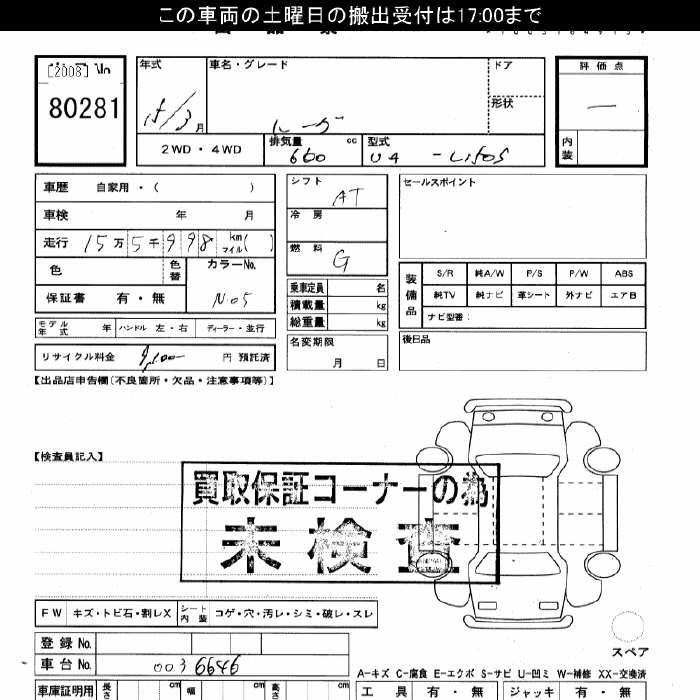 この車両の土曜日の搬出受付は17:00まで
[2008] No
80281
年式
15/3月
車名・グレード
ルーダ
ドア
形状
評価点
―
内装
2WD・4WD
排気量
660 cc
型式
車歴 自家用・( )
車検 年 月
走行 15万5千998 km マイル( )
色
色替
カラーNo.
N.05
保証書 有・無
モデル年式 年 ハンドル 左・右 ディーラー・並行
リサイクル料金 円 預託済
シフト
AT
冷房
燃料
G
乗車定員 名
積載量 kg
総重量 kg
名変期限
月 日
セールスポイント
装備品
S/R 純A/W P/S P/W ABS
純TV 純ナビ 革シート 外ナビ エアB
ナビ型番:
後日品
【出品店申告欄(不良箇所・欠品・注意事項等)】
【検査員記入】
買取保証コーナーの為
未検査
FW キズ・トビ石・割レX シート内装 コゲ・穴・汚レ・シミ・破レ・スレ
登録No.
車台No. 0036646
スペア
A-キズ C-腐食 E-エクボ S-サビ U-凹ミ W-補修 XX-交換済
車庫証明用 長さ cm 幅 cm 高さ cm
工具 有・無 ジャッキ 有・無